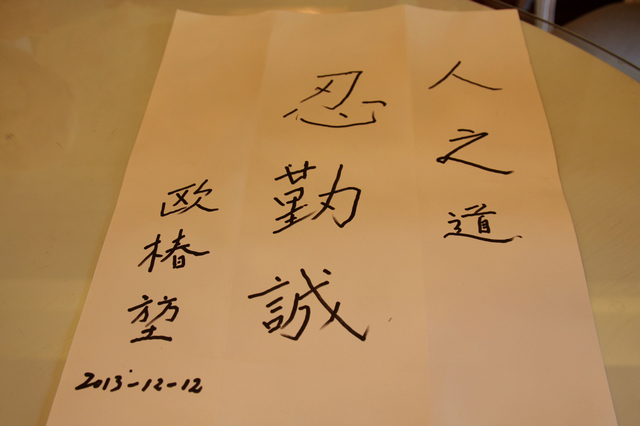 人之道
忍勤誠
欧椿堃
2013-12-12